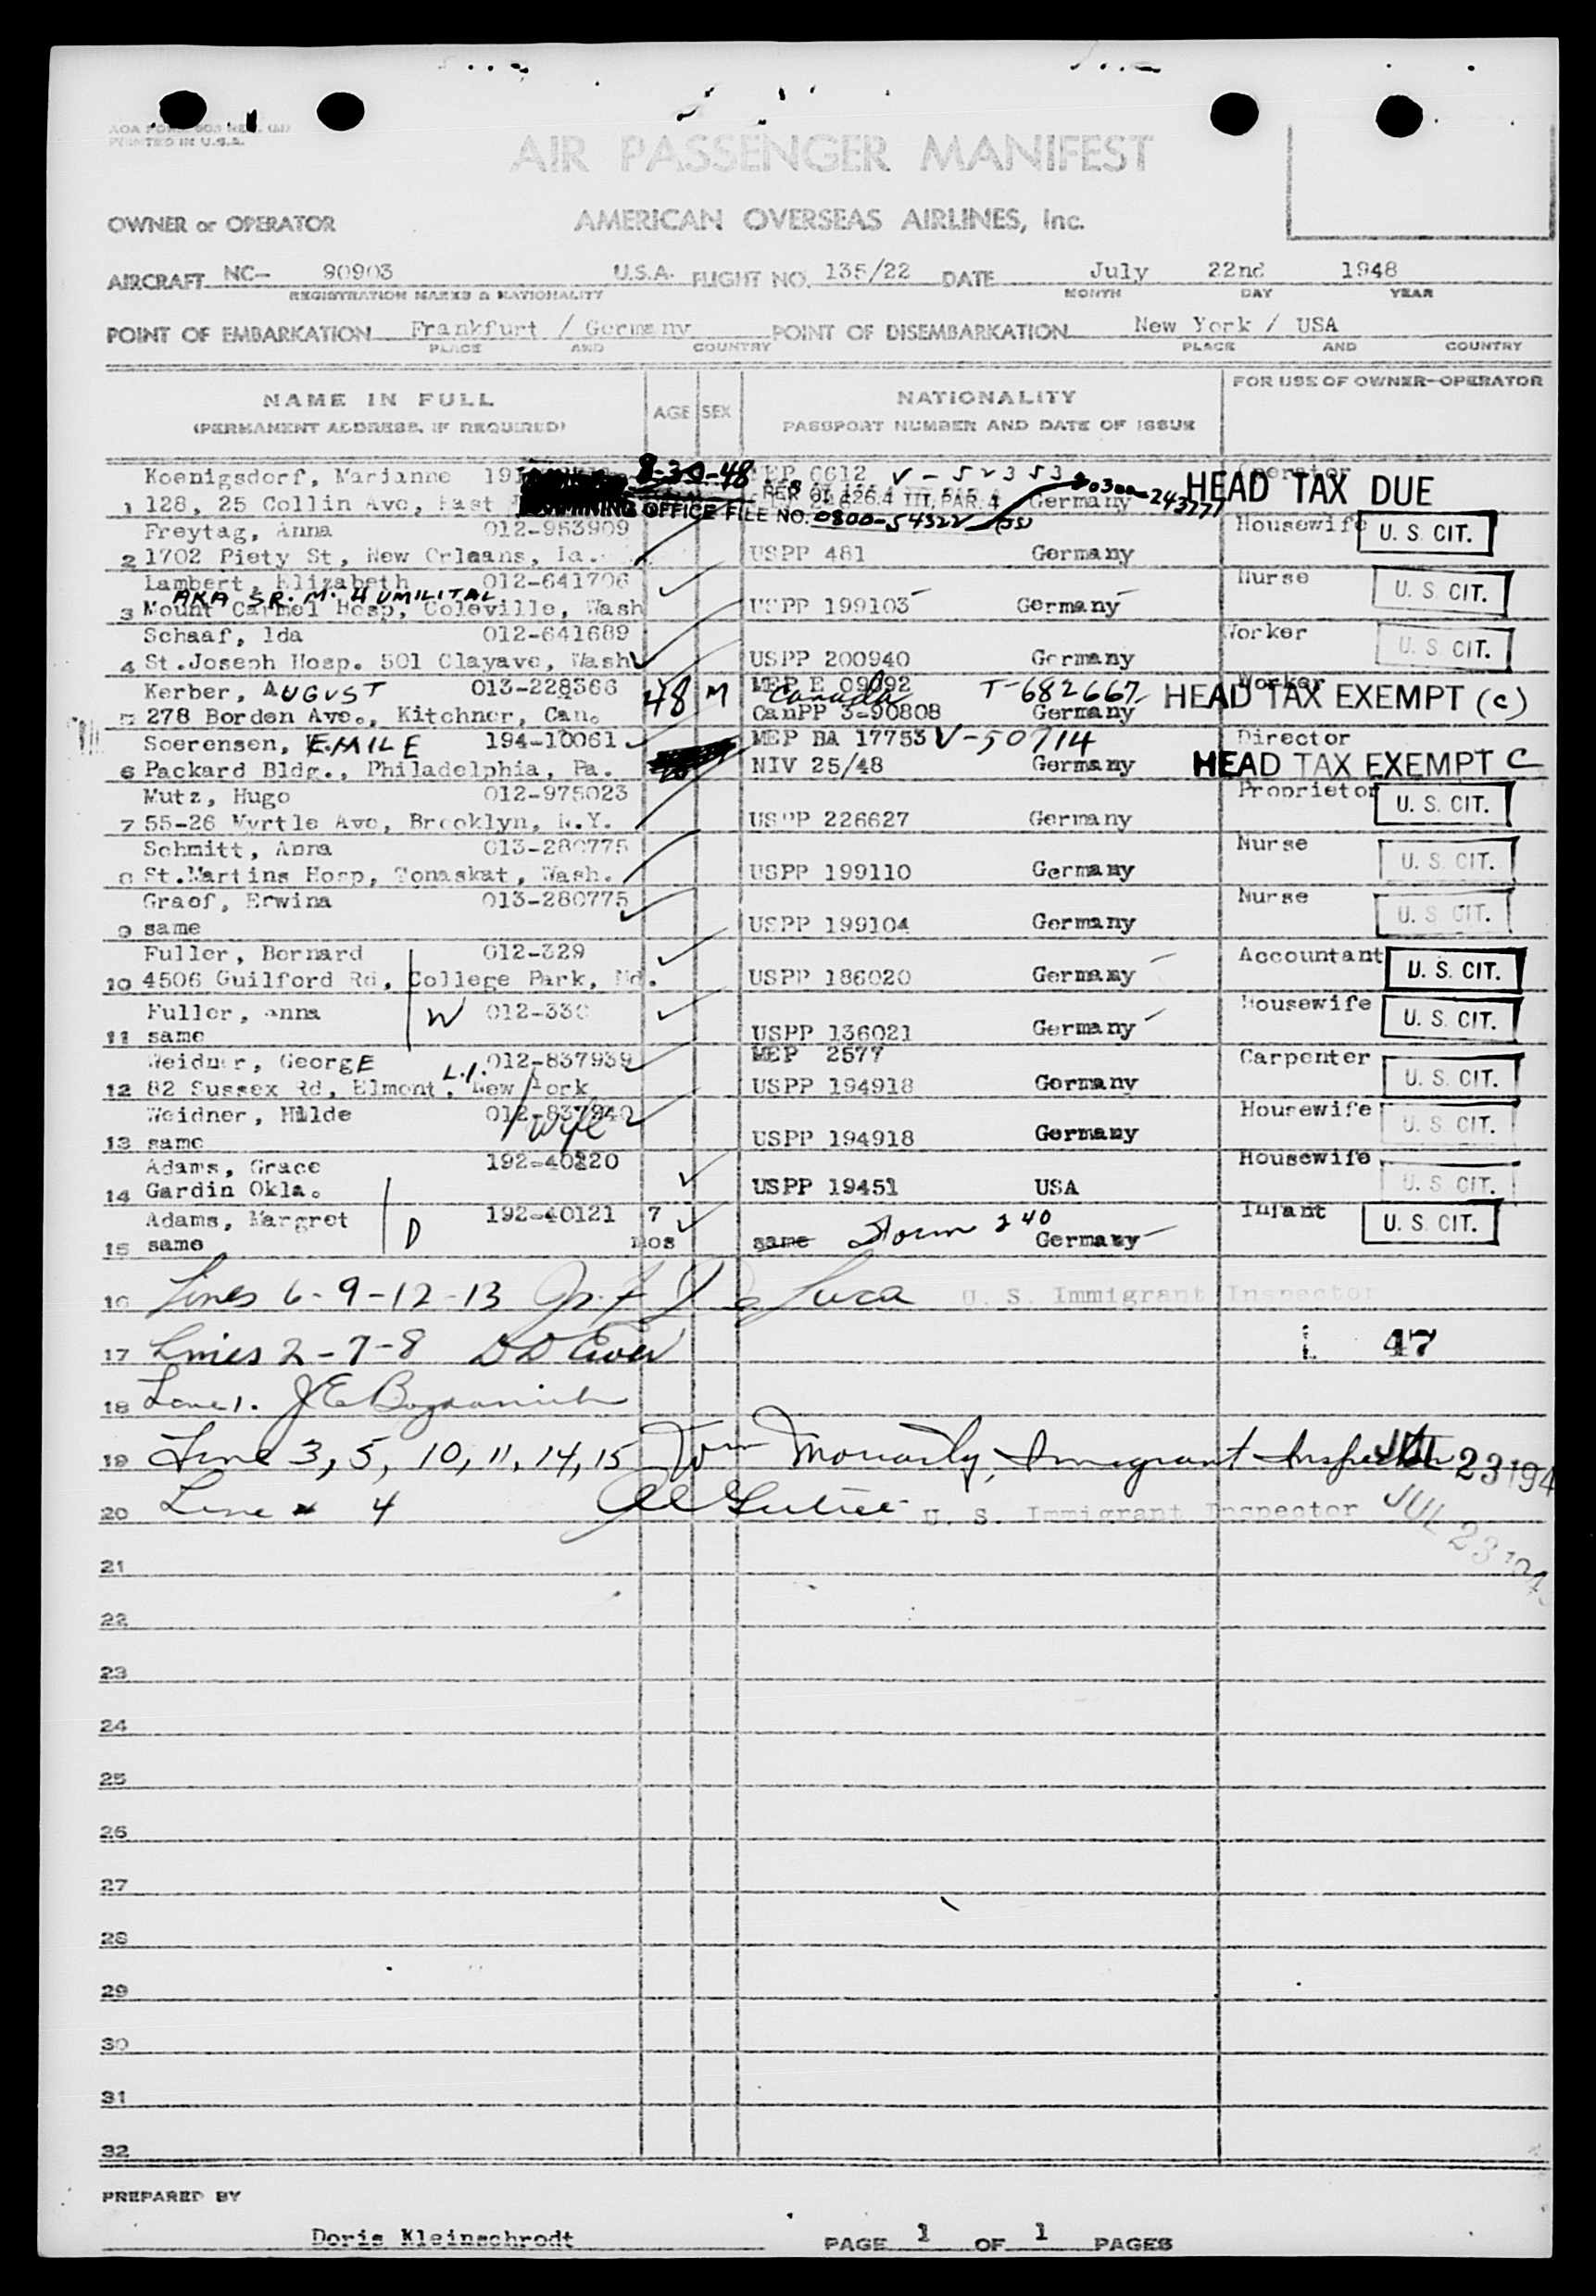 AOA FORM 603 REV.
PRINTED IN U.S.A.
AIR PASSENGER MANIFEST
OWNER or OPERATOR AMERICAN OVERSEAS AIRLINES, Inc.
AIRCRAFT NC- 90903 U.S.A. FLIGHT NO. 135/22 DATE July 22nd 1948
REGISTRATION MARKS & NATIONALITY MONTH DAY YEAR
POINT OF EMBARKATION Frankfurt / Germany POINT OF DISEMBARKATION New York / USA
PLACE AND COUNTRY PLACE AND COUNTRY
NAME IN FULL AGE SEX NATIONALITY FOR USE OF OWNER-OPERATOR
(PERMANENT ADDRESS, IF REQUIRED) PASSPORT NUMBER AND DATE OF ISSUE
Koenigsdorf, Marianne 8-30-48 MEP 6612 V-52353 Operator
1 128, 25 Collin Ave, East PER OI 126.4 III, PAR. 4 Germany 0300-243771 HEAD TAX DUE
EXAMINING OFFICE FILE NO. 0800-54322
Freytag, Anna 012-953909 Housewife U. S. CIT.
2 1702 Piety St, New Orleans, La. USPP 481 Germany
Lambert, Elizabeth 012-641706 Nurse U. S. CIT.
AKA SR. M. HUMILITAL
3 Mount Carmel Hosp, Coleville, Wash USPP 199103 Germany
Schaaf, Ida 012-641689 Worker U. S. CIT.
4 St.Joseph Hosp. 501 Clayave, Wash USPP 200940 Germany
Kerber, AUGUST 013-228366 48 M MEP E 09092 Canada T-682667 Worker HEAD TAX EXEMPT (C)
5 278 Borden Ave., Kitchner, Can. CanPP 3-90808 Germany
Soerensen, EMILE 194-10061 MEP BA 17753 V-50714 Director
6 Packard Bldg., Philadelphia, Pa. NIV 25/48 Germany HEAD TAX EXEMPT C
Mutz, Hugo 012-975023 Proprietor U. S. CIT.
7 55-26 Myrtle Ave, Brooklyn, N.Y. USPP 226627 Germany
Schmitt, Anna 013-280775 Nurse U. S. CIT.
8 St.Martins Hosp, Tonaskat, Wash. USPP 199110 Germany
Graef, Erwina 013-280775 Nurse U. S. CIT.
9 same USPP 199104 Germany
Fuller, Bernard 012-329 Accountant U. S. CIT.
10 4506 Guilford Rd, College Park, Md. USPP 186020 Germany
Fuller, Anna W 012-330 Housewife U. S. CIT.
11 same USPP 136021 Germany
Weidner, GeorgE 012-837939 MEP 2577 Carpenter U. S. CIT.
12 82 Sussex Rd, Elmont, L.I. New York USPP 194918 Germany
Weidner, Hilde 012-837940 Housewife U. S. CIT.
13 same wife USPP 194918 Germany
Adams, Grace 192-40120 Housewife U. S. CIT.
14 Gardin Okla. USPP 19451 USA
Adams, Margret D 192-40121 7 Form 240 Infant U. S. CIT.
15 same mos same Germany
16 Lines 6-9-12-13 De Luca U. S. Immigrant Inspector
17 Lines 2-7-8 47
18 Line 1.
19 Line 3, 5, 10, 11, 14, 15 Wm Moriarty, Immigrant Inspector JUL 23 194
20 Line 4 U. S. Immigrant Inspector JUL 23 194
21
22
23
24
25
26
27
28
29
30
31
32
PREPARED BY
Doris Kleinschrodt PAGE 1 OF 1 PAGES